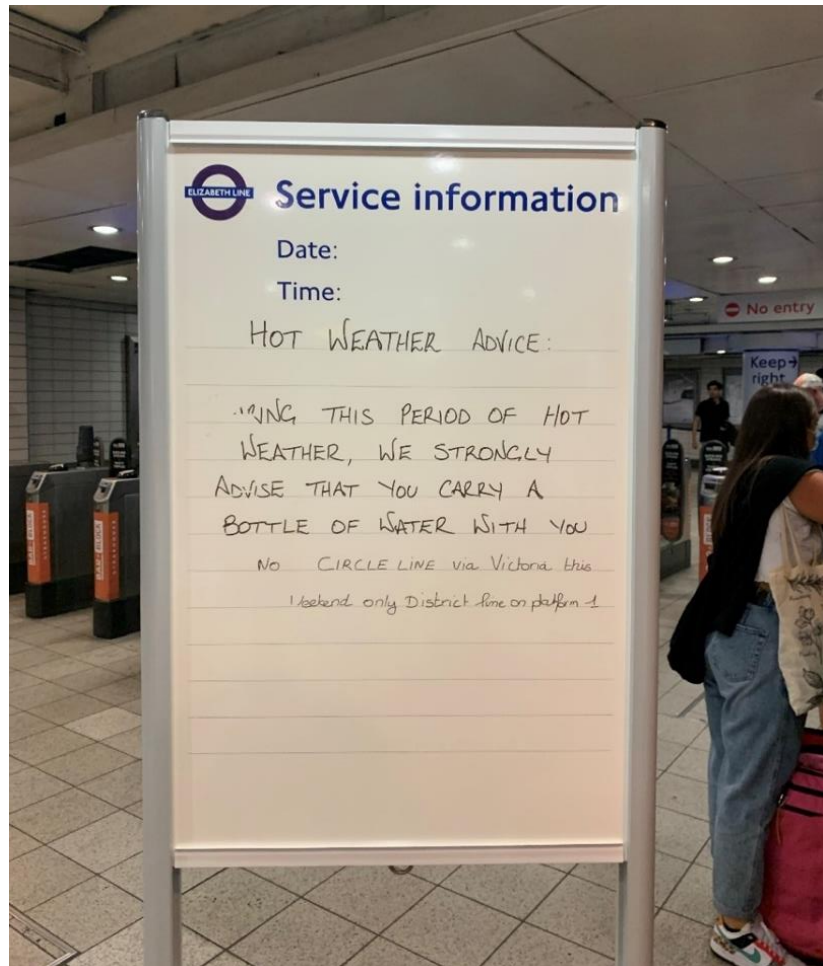 ELIZABETH LINE
Service information
Date:
Time:
HOT WEATHER ADVICE:
THIS PERIOD OF HOT
WEATHER, WE STRONGLY
ADVISE THAT YOU CARRY A
BOTTLE OF WATER WITH YOU
No CIRCLE LINE via Victoria this
only District line on platform 1
No entry
Keep
right